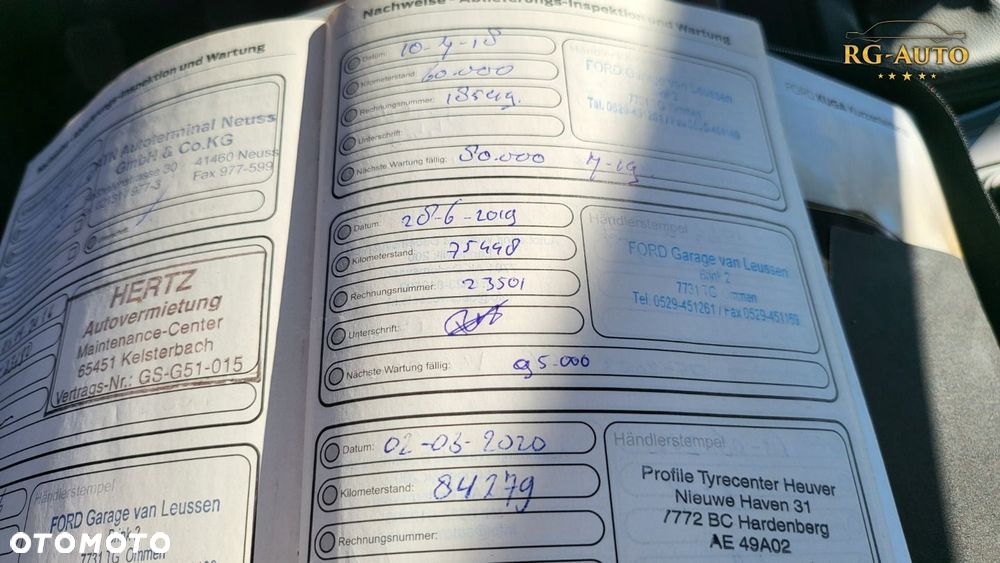 Inspektion und Wartung
Autoterminal Neuss
GmbH & Co.KG
41460 Neuss
Fax 977-599
HERTZ
Autovermietung
Maintenance-Center
65451 Kelsterbach
Vertrags-Nr.: GS-G51-015
Händlerstempel
FORD Garage van Leussen
Brink 2
7731 TG Ommen
Nachweise - Ablieferungs-Inspektion und Wartung
Datum: 10-4-18
Kilometerstand: 60.000
Rechnungsnummer: 18549.
Unterschrift:
Nächste Wartung fällig: 80.000 4-19
Händlerstempel
FORD Garage van Leussen
7731 TG Ommen
Tel. 0529-451261 / Fax 0529-451159
Datum: 28-6-2019
Kilometerstand: 75448
Rechnungsnummer: 23501
Unterschrift:
Nächste Wartung fällig: 95.000
Händlerstempel
FORD Garage van Leussen
Brink 2
7731 TG Ommen
Tel. 0529-451261 / Fax 0529-451159
Datum: 02-03-2020
Kilometerstand: 84279
Rechnungsnummer:
Händlerstempel
Profile Tyrecenter Heuver
Nieuwe Haven 31
7772 BC Hardenberg
AE 49A02
FORD KUGA
RG-AUTO
OTOMOTO